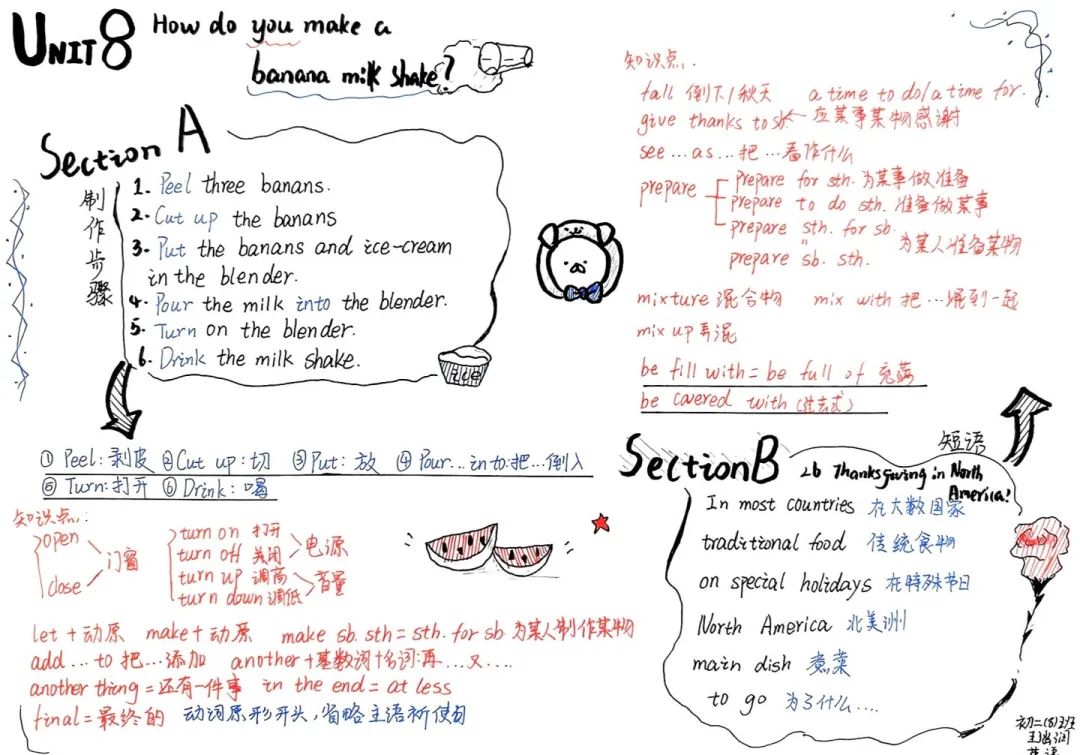 UNIT 8 How do you make a
banana milk shake?
Section A
制作步骤
1. Peel three banans.
2. Cut up the banans
3. Put the banans and ice-cream
in the blender.
4. Pour the milk into the blender.
5. Turn on the blender.
6. Drink the milk shake.
① Peel:剥皮 ②Cut up:切 ③Put:放 ④Pour...into:把...倒入
⑤Turn:打开 ⑥Drink:喝
知识点:
open
close
门窗
turn on 打开
turn off 关闭
电源
turn up 调高
turn down 调低
音量
let+动原 make+动原 make sb. sth=sth. for sb 为某人制作某物
add...to 把...添加 another+基数词+名词:再...又...
another thing=还有一件事 in the end=at less
final=最终的 动词原形开头,省略主语祈使句
知识点:
fall 倒下/秋天 a time to do/a time for.
give thanks to sb. 应某事某物感谢
see...as...把...看作什么
prepare
prepare for sth.为某事做准备
prepare to do sth.准备做某事
prepare sth. for sb.
prepare sb. sth.
为某人准备某物
mixture 混合物 mix with 把...混到一起
mix up 弄混
be fill with=be full of 充满
be covered with(过去式)
Section B
短语
2b Thanksgiving in North
America!
In most countries 在大数国家
traditional food 传统食物
on special holidays 在特殊节日
North America 北美洲
main dish 煮菜
to go 为了什么...
初二(8)班
英语